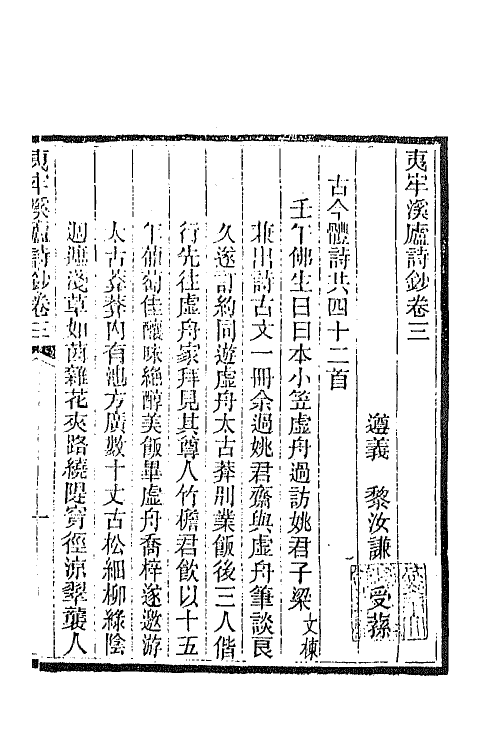 夷牢溪廬詩鈔卷三
遵義　黎汝謙　受蓀
古今體詩共四十二首
壬午佛生日日本小笠虛舟過訪姚君子梁文棟
兼出詩古文一冊余過姚君齋與虛舟筆談良
久遂訂約同遊虛舟太古莽別業飯後三人偕
行先往虛舟家拜見其尊人竹檐君飲以十五
年葡萄佳釀味絕醇美飯畢虛舟喬梓遂邀游
太古莽莽內有池方廣數十丈古松細柳綠陰
迴遮淺草如茵雜花夾路繞隄穿徑涼翠襲人
夷牢溪廬詩鈔卷三
一